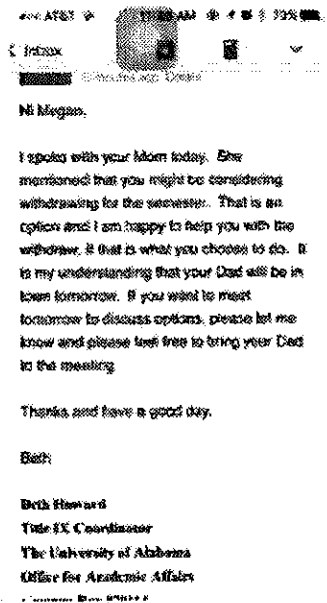 AT&T 73%
Inbox
Details
Hi Megan,
I spoke with your Mom today. She
mentioned that you might be considering
withdrawing for the semester. That is an
option and I am happy to help you with the
withdraw, if that is what you choose to do. It
is my understanding that your Dad will be in
town tomorrow. If you want to meet
tomorrow to discuss options, please let me
know and please feel free to bring your Dad
to the meeting.
Thanks and have a good day.
Beth
Beth Howard
Title IX Coordinator
The University of Alabama
Office for Academic Affairs